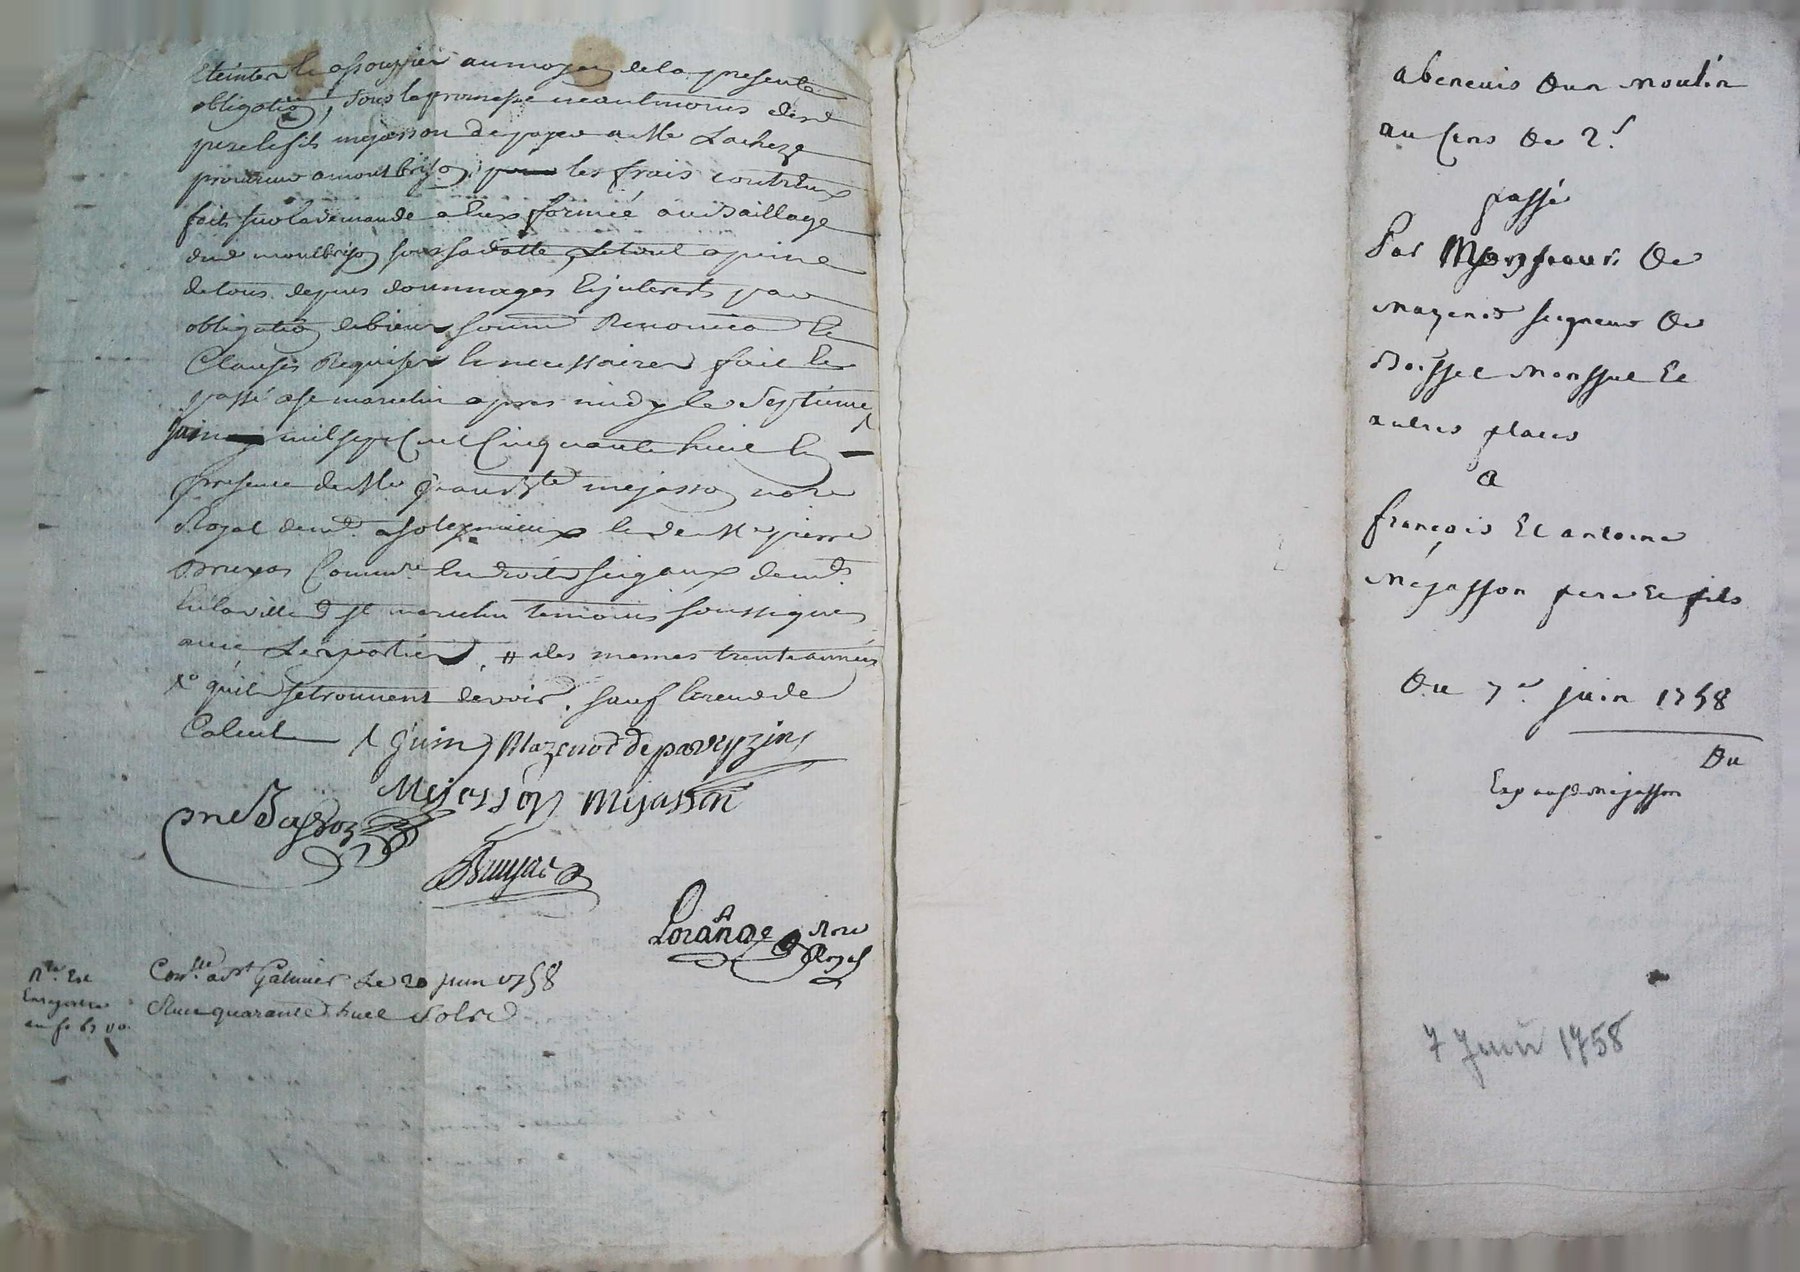 Eteintes et assoupies au moyen de la presente
obligation, sous la promesse neantmoins desd
pere et fils mejasson de payer a Me Lacheze
procureur a montbrison, les frais contr'eux
faits sur la demande a eux formée au Baillage
dud montbrison sous sa datte, Le tout a peine
de tous depens dommages et interests par
obligation de biens soum Renonciaon et
Clauses Requises et necessaires fait et
passé a st marcelin apres midy le Septieme
juin mil sept Cent Cinquante huit En
presence de Me mejasson nore
Royal demt a soleymieux et de Me pierre
Bruyas Commre En droits seigaux demt
En la ville de st marcelin temoins soussignes
avec Les parties. # des memes trente années
xo qu'ils se trouvent devoir, sauf Erreur de
Calcul x juin Mazenod de pavezin
Mejasson mejasson
Bruyas
Lorange Nore
Royal
Mte Est
Enregistrée
au fo 67 vo.
Conlle a st Galmier Le 20 juin 1758
Reçu quarante huit Sols
abenevis d'un moulin
au Cens de 2s
passé
Par Monsieur De
Mazenod seigneur De
Boisset Monssul Et
autres places
A
françois Et antoine
Mejasson pere Et fils
Du 7e juin 1758
Du
Exp aud Mejasson
7 Juin 1758